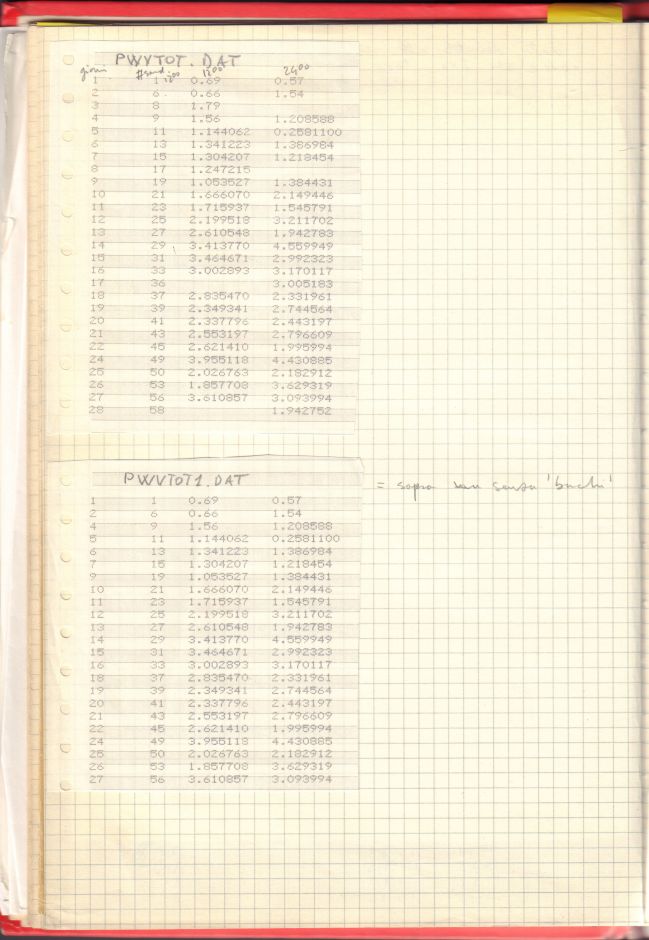 PWVTOT.DAT
giorni 1200 2400
1 1 0.69 0.57
2 6 0.66 1.54
3 8 1.79
4 9 1.56 1.208588
5 11 1.144062 0.2581100
6 13 1.341223 1.386984
7 15 1.304207 1.218454
8 17 1.247215
9 19 1.053527 1.384431
10 21 1.666070 2.149446
11 23 1.715937 1.545791
12 25 2.199518 3.211702
13 27 2.610548 1.942783
14 29 3.413770 4.559949
15 31 3.464671 2.992323
16 33 3.002893 3.170117
17 36 3.005183
18 37 2.835470 2.331961
19 39 2.349341 2.744564
20 41 2.337796 2.443197
21 43 2.553197 2.796609
22 45 2.621410 1.995994
24 49 3.955118 4.430885
25 50 2.026763 2.182912
26 53 1.857708 3.629319
27 56 3.610857 3.093994
28 58 1.942752
PWVTOT1.DAT
= sopra ma senza 'buchi'
1 1 0.69 0.57
2 6 0.66 1.54
4 9 1.56 1.208588
5 11 1.144062 0.2581100
6 13 1.341223 1.386984
7 15 1.304207 1.218454
9 19 1.053527 1.384431
10 21 1.666070 2.149446
11 23 1.715937 1.545791
12 25 2.199518 3.211702
13 27 2.610548 1.942783
14 29 3.413770 4.559949
15 31 3.464671 2.992323
16 33 3.002893 3.170117
18 37 2.835470 2.331961
19 39 2.349341 2.744564
20 41 2.337796 2.443197
21 43 2.553197 2.796609
22 45 2.621410 1.995994
24 49 3.955118 4.430885
25 50 2.026763 2.182912
26 53 1.857708 3.629319
27 56 3.610857 3.093994